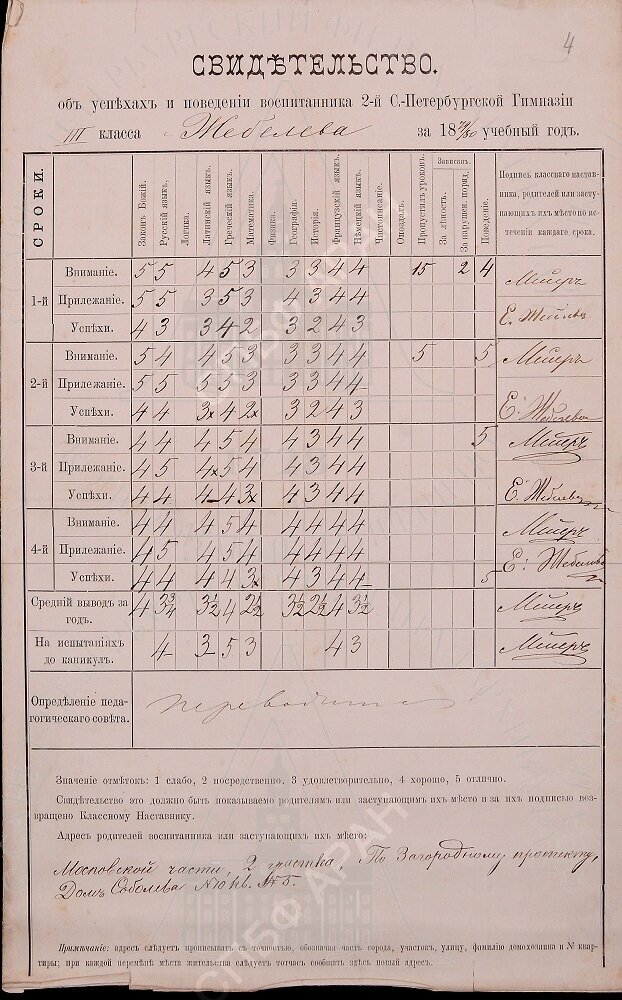 4
СВИДѢТЕЛЬСТВО.
объ успѣхахъ и поведеніи воспитанника 2-й С.-Петербургской Гимназіи
III класса Жебелева за 1879/80 учебный годъ.
СРОКИ.
Законъ Божій.
Русскій языкъ.
Логика.
Латинскій языкъ.
Греческій языкъ.
Математика.
Физика.
Географія.
Исторія.
Французскій языкъ.
Нѣмецкій языкъ.
Чистописаніе.
Опоздалъ.
Пропустилъ уроковъ.
Записанъ.
За лѣность.
За нарушен. поряд.
Поведеніе.
Подпись класснаго настав-
ника, родителей или засту-
пающихъ ихъ мѣсто по ис-
теченіи каждаго срока.
1-й
Вниманіе. 5 5 4 5 3 3 3 4 4 15 2 4 Мейеръ
Прилежаніе. 5 5 3 5 3 4 3 4 4
Успѣхи. 4 3 3 4 2 3 2 4 3 Е. Жебелевъ
2-й
Вниманіе. 5 4 4 5 3 3 3 4 4 5 5 Мейеръ
Прилежаніе. 5 5 5 5 3 3 3 4 4
Успѣхи. 4 4 3х 4 2х 3 2 4 3 Е. Жебелева
3-й
Вниманіе. 4 4 4 5 4 4 3 4 4 5 Мейеръ
Прилежаніе. 4 5 4х 5 4 4 3 4 4
Успѣхи. 4 4 4 4 3х 4 3 4 4 Е. Жебелева
4-й
Вниманіе. 4 4 4 5 4 4 4 4 4 Мейеръ
Прилежаніе. 4 5 4 5 4 4 4 4 4 Е. Жебелева
Успѣхи. 4 4 4 4 3х 4 3 4 4 5
Средній выводъ за
годъ. 4 3¾ 3½ 4 2½ 3½ 2½ 4 3½ Мейеръ
На испытаніяхъ
до каникул. 4 3 5 3 4 3 Мейеръ
Опредѣленіе педа-
гогическаго совѣта. переводится
Значеніе отмѣтокъ: 1 слабо, 2 посредственно, 3 удовлетворительно, 4 хорошо, 5 отлично.
Свидѣтельство это должно быть показываемо родителямъ или заступающимъ ихъ мѣсто и за ихъ подписью воз-
вращено Классному Наставнику.
Адресъ родителей воспитанника или заступающихъ ихъ мѣсто:
Московской части, 2 участка, По Загородному проспекту,
Домъ Соболева №10 кв. №5.
Примѣчаніе: адресъ слѣдуетъ прописывать съ точностью, обозначая часть города, участокъ, улицу, фамилію домохозяина и № квар-
тиры; при каждой перемѣнѣ мѣста жительства слѣдуетъ тотчасъ сообщать здѣсь новый адресъ.
СПБФ АРАН